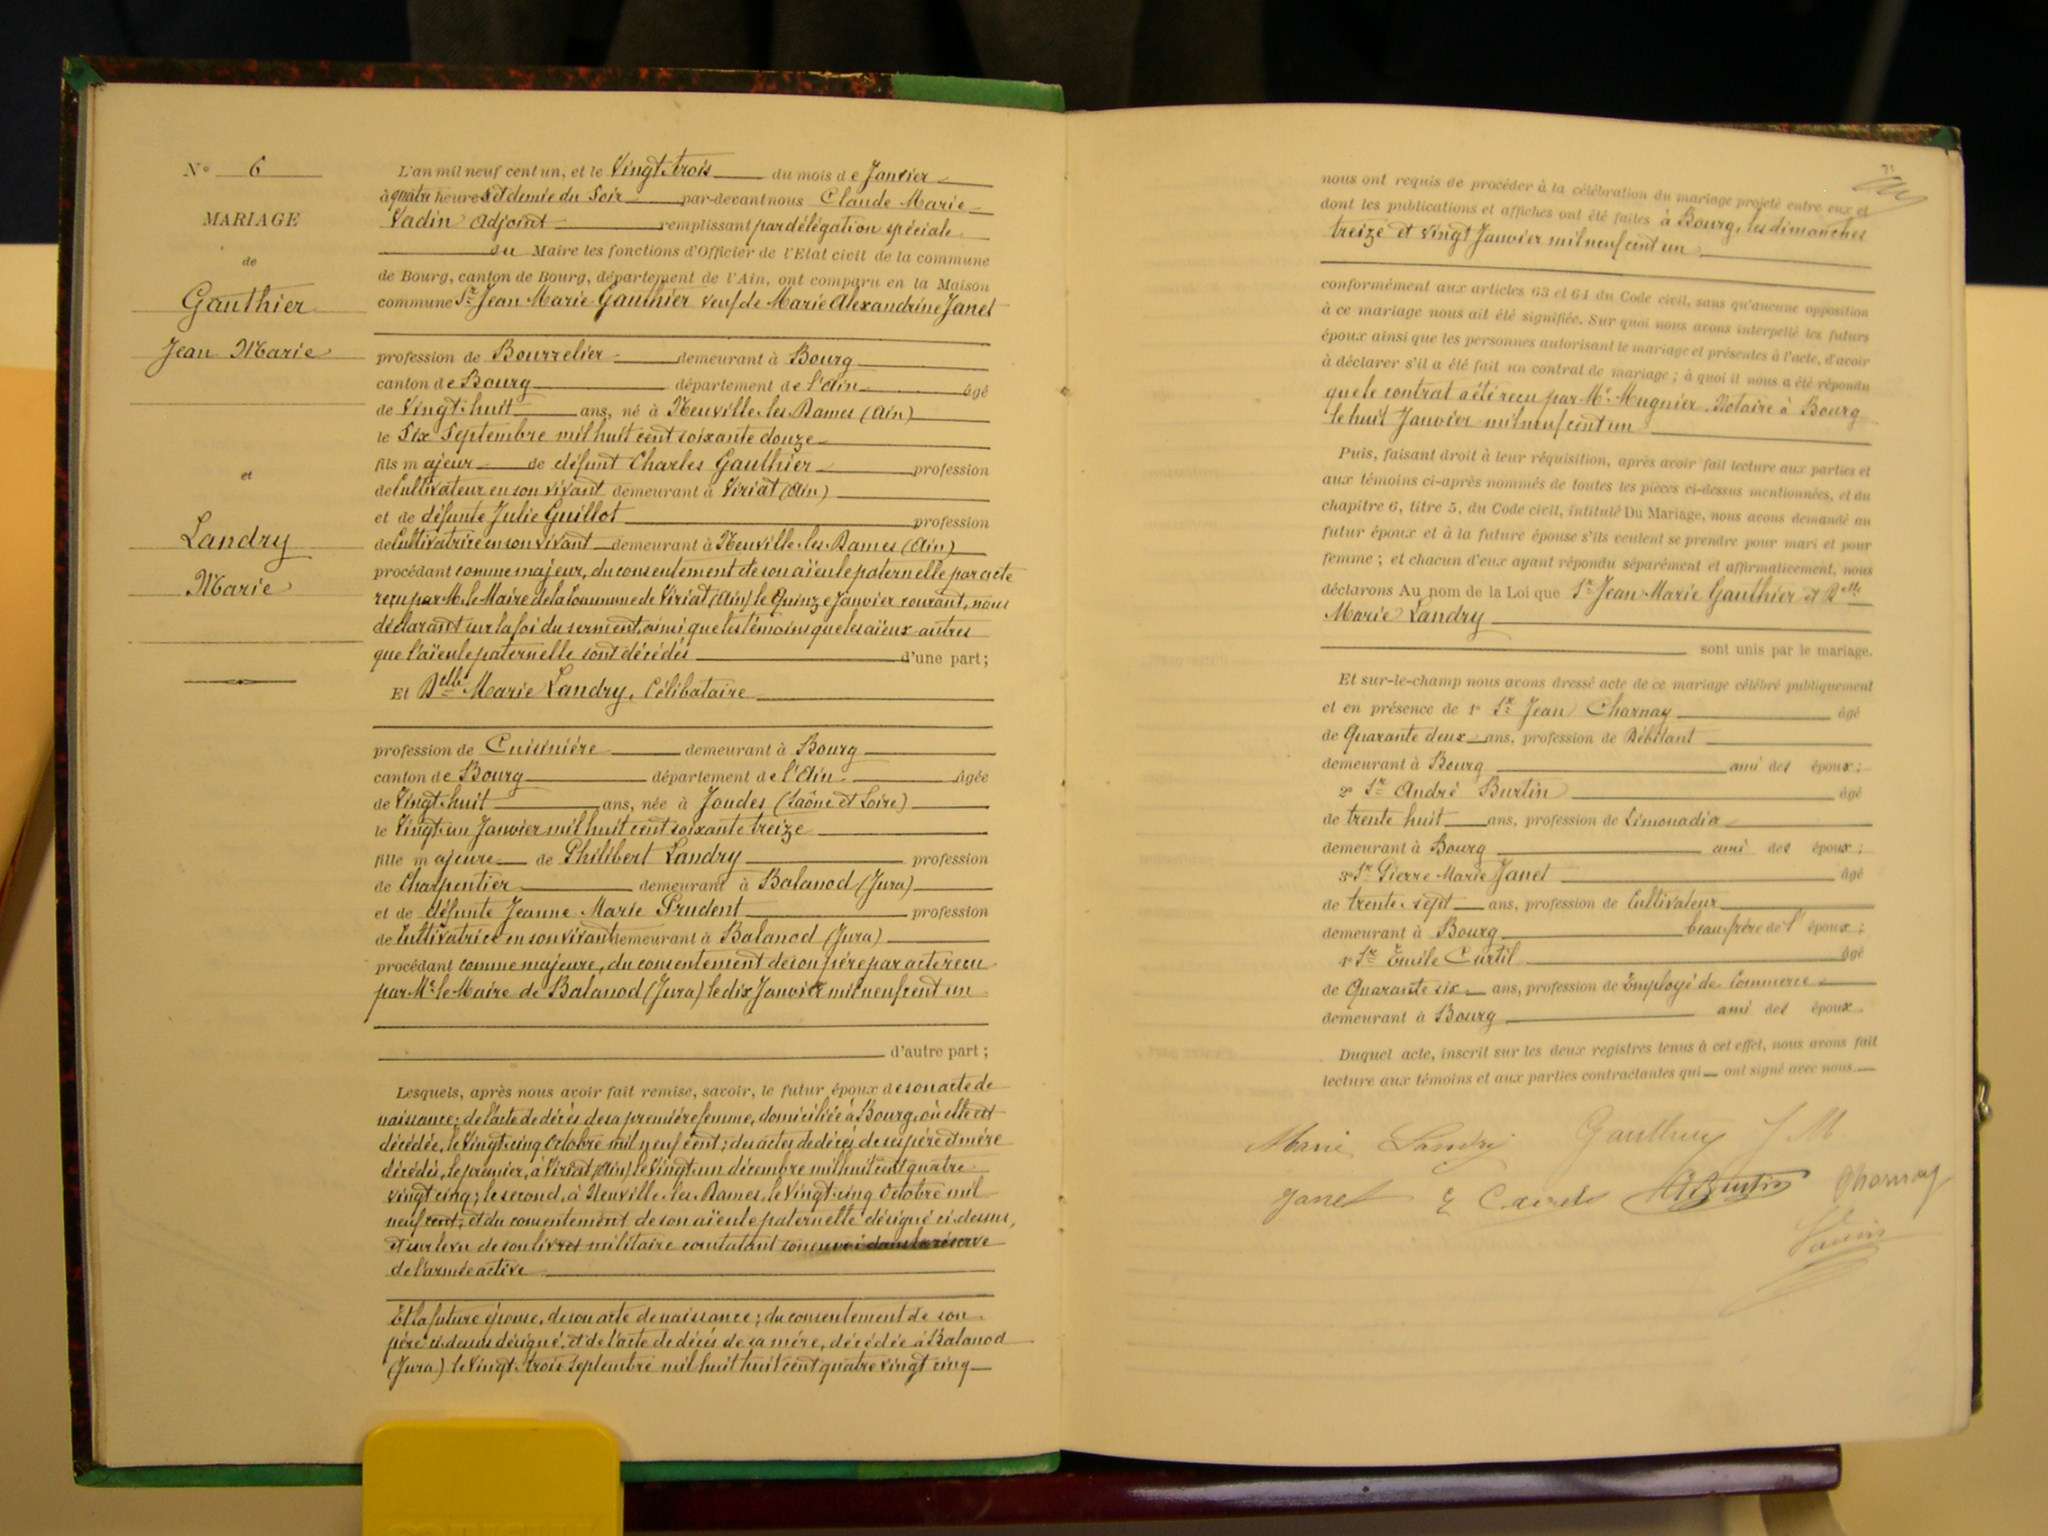 N° 6
MARIAGE
de
Gauthier
Jean Marie
et
Landry
Marie
L'an mil neuf cent un, et le Vingt trois du mois de Janvier
à quatre heures et demie du Soir par-devant nous Claude Marie
Vadin Adjoint remplissant par délégation spéciale
du Maire les fonctions d'Officier de l'Etat civil de la commune
de Bourg, canton de Bourg, département de l'Ain, ont comparu en la Maison
commune Sr Jean Marie Gauthier veuf de Marie Alexandrine Janet
profession de Bourrelier demeurant à Bourg
canton de Bourg département de l'Ain âgé
de Vingt-huit ans, né à Neuville-les-Dames (Ain)
le Six Septembre mil huit cent soixante douze
fils majeur de défunt Charles Gauthier profession
de Cultivateur en son vivant demeurant à Viriat (Ain)
et de défunte Julie Guillot profession
de Cultivatrice en son vivant demeurant à Neuville-les-Dames (Ain)
procédant comme majeur, du consentement de son aïeule paternelle par acte
reçu par Mr le Maire de la Commune de Viriat (Ain) le Quinze Janvier courant, nous
déclarant sur la foi du serment, ainsi que les témoins que les aïeux autres
que l'aïeule paternelle sont décédés d'une part;
Et Delle Marie Landry, Célibataire
profession de Cuisinière demeurant à Bourg
canton de Bourg département de l'Ain âgée
de Vingt-huit ans, née à Joudes (Saône et Loire)
le Vingt-un Janvier mil huit cent soixante treize
fille majeure de Philibert Landry profession
de Charpentier demeurant à Balanod (Jura)
et de défunte Jeanne Marie Prudent profession
de Cultivatrice en son vivant demeurant à Balanod (Jura)
procédant comme majeure, du consentement de son père par acte reçu
par Mr le Maire de Balanod (Jura) le dix Janvier mil neuf cent un
d'autre part;
Lesquels, après nous avoir fait remise, savoir, le futur époux de son acte de
naissance; de l'acte de décès de sa première femme, domiciliée à Bourg, où elle est
décédée, le Vingt-cinq Octobre mil neuf cent; des actes de décès de ses père et mère
décédés, le premier, à Viriat (Ain) le Vingt-un décembre mil huit cent quatre
vingt cinq; le second, à Neuville-les-Dames, le Vingt-cinq Octobre mil
neuf cent; et du consentement de son aïeule paternelle désigné ci-dessus,
et sur le vu de son livret militaire constatant son envoi dans la réserve
de l'armée active
Et la future épouse, de son acte de naissance; du consentement de son
père ci-dessus désigné, et de l'acte de décès de sa mère, décédée à Balanod
(Jura) le Vingt-trois Septembre mil huit huit cent quatre vingt cinq
nous ont requis de procéder à la célébration du mariage projeté entre eux et
dont les publications et affiches ont été faites à Bourg, les dimanches
treize et vingt Janvier mil neuf cent un
conformément aux articles 63 et 64 du Code civil, sans qu'aucune opposition
à ce mariage nous ait été signifiée. Sur quoi nous avons interpellé les futurs
époux ainsi que les personnes autorisant le mariage et présentes à l'acte, d'avoir
à déclarer s'il a été fait un contrat de mariage; à quoi il nous a été répondu
que le contrat a été reçu par Me Mugnier Notaire à Bourg
le huit Janvier mil neuf cent un
Puis, faisant droit à leur réquisition, après avoir fait lecture aux parties et
aux témoins ci-après nommés de toutes les pièces ci-dessus mentionnées, et du
chapitre 6, titre 5, du Code civil, intitulé Du Mariage, nous avons demandé au
futur époux et à la future épouse s'ils veulent se prendre pour mari et pour
femme; et chacun d'eux ayant répondu séparément et affirmativement, nous
déclarons Au nom de la Loi que Sr Jean Marie Gauthier et Delle
Marie Landry
sont unis par le mariage.
Et sur-le-champ nous avons dressé acte de ce mariage célébré publiquement
et en présence de 1° Sr Jean Charnay âgé
de Quarante deux ans, profession de Débitant
demeurant à Bourg ami des époux;
2° Sr André Burtin âgé
de trente huit ans, profession de Limonadier
demeurant à Bourg ami des époux;
3° Sr Pierre Marie Janet âgé
de trente-sept ans, profession de Cultivateur
demeurant à Bourg beau-frère de l'époux;
4° Sr Emile Curtil âgé
de Quarante six ans, profession de Employé de Commerce
demeurant à Bourg ami des époux.
Duquel acte, inscrit sur les deux registres tenus à cet effet, nous avons fait
lecture aux témoins et aux parties contractantes qui ont signé avec nous.
Marie Landry Gauthier J M
Janet E Curtil A Burtin Charnay
Vadin